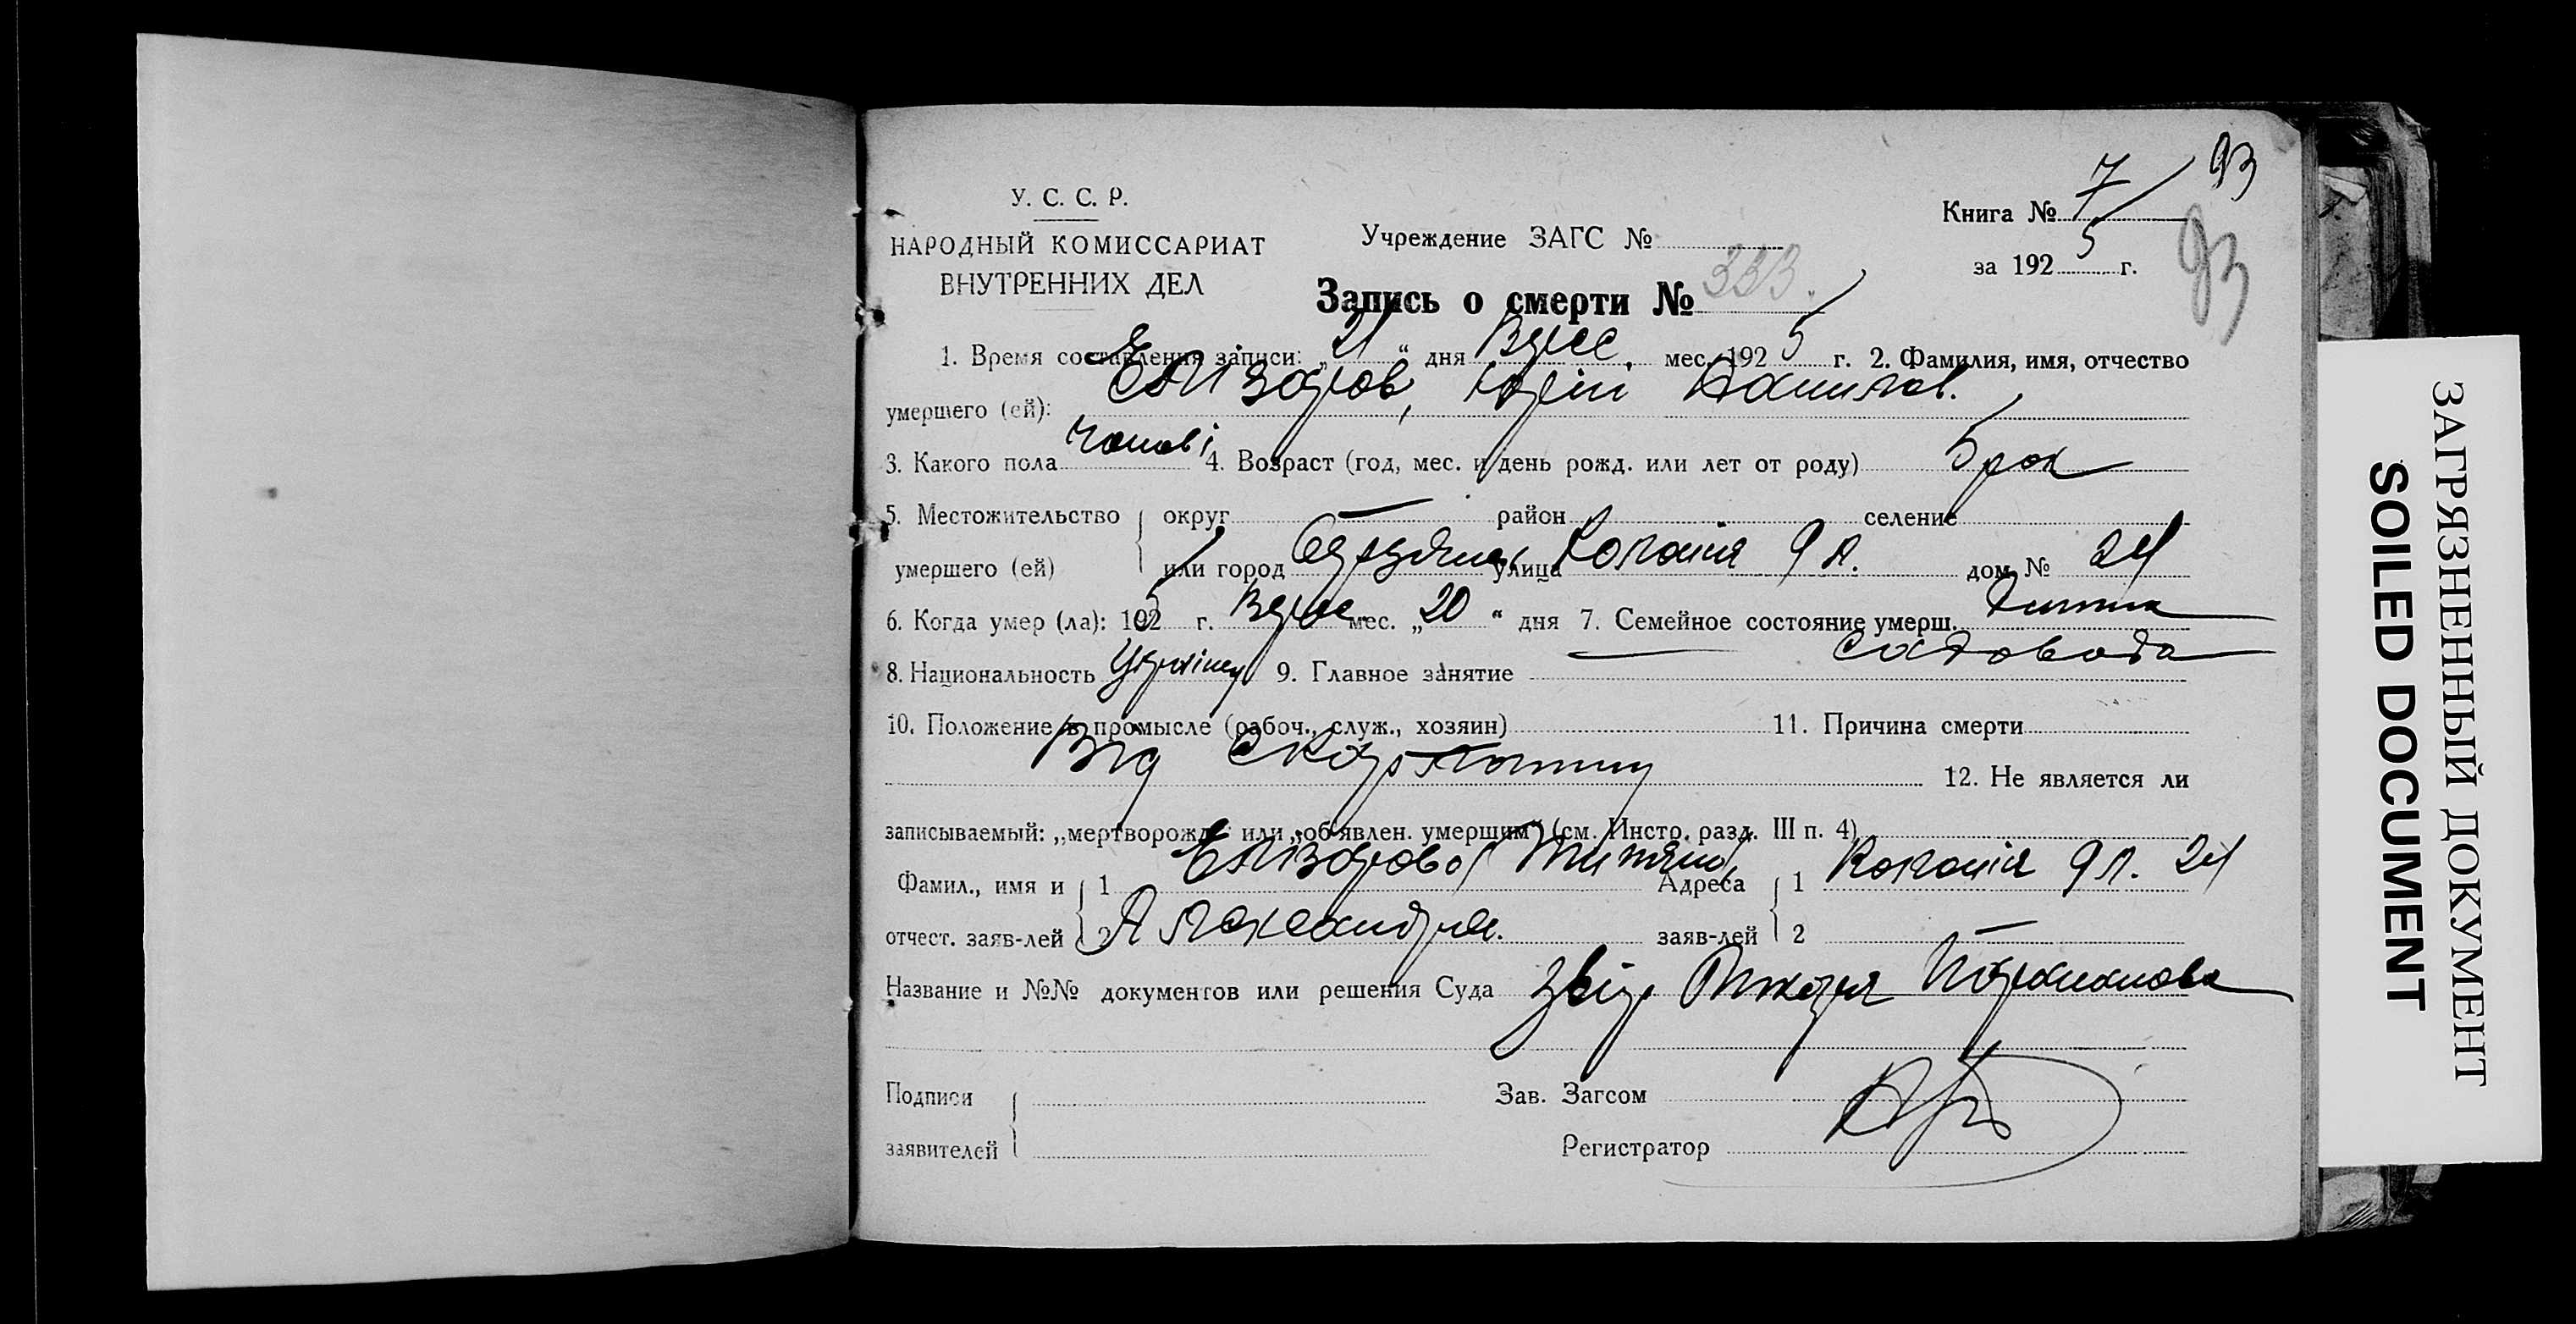 93
У. С. С. Р.
НАРОДНЫЙ КОМИССАРИАТ
ВНУТРЕННИХ ДЕЛ
Учреждение ЗАГС №
Книга № 7
за 1925 г.
93
Запись о смерти № 333.
1. Время составления записи: „21“ дня Верес. мес. 1925 г. 2. Фамилия, имя, отчество
умершего (ей): Єлизаров, Юрій Данилов.
3. Какого пола чолові 4. Возраст (год, мес. и день рожд. или лет от роду) 5 рок
5. Местожительство округ — район селение
умершего (ей) или город улица Колонія 9 л. дом № 24
6. Когда умер (ла): 1925 г. Верес мес. „20“ дня 7. Семейное состояние умерш. Дитина
8. Национальность Украінец 9. Главное занятие садовода
10. Положение в промысле (рабоч., служ., хозяин) 11. Причина смерти
Від Скарлатини 12. Не является ли
записываемый: „мертворожд“ или „об'явлен. умершим“ (см. Инстр. разд. III п. 4)
Фамил., имя и 1 Єлизарова Адреса 1 Колонія 9 л. 24
отчест. заяв-лей 2 Александра. заяв-лей 2 —
Название и №№ документов или решения Суда
Подписи
заявителей
Зав. Загсом
Регистратор
ЗАГРЯЗНЕННЫЙ ДОКУМЕНТ
SOILED DOCUMENT